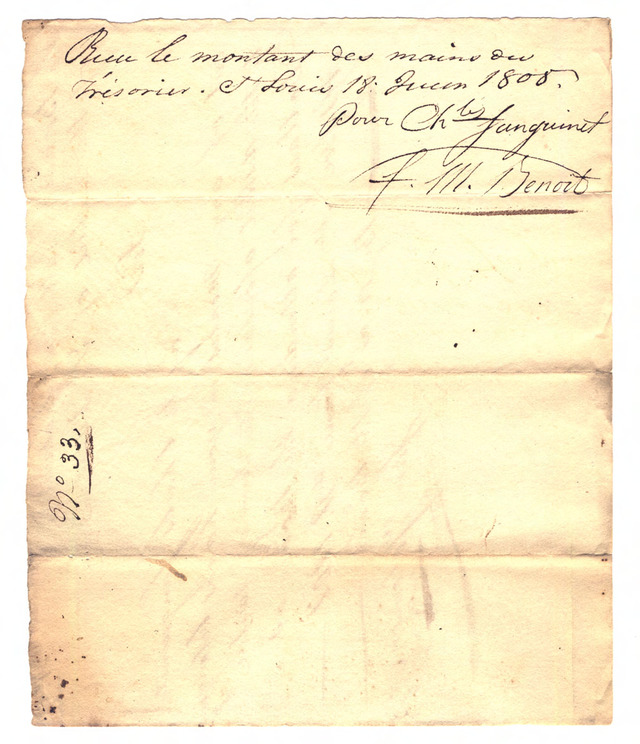 Recu le montant des mains du
Trésorier. St Louis 18. Juin 1808.
pour Chles Sanguinet
F. M. Benoit
No 33,